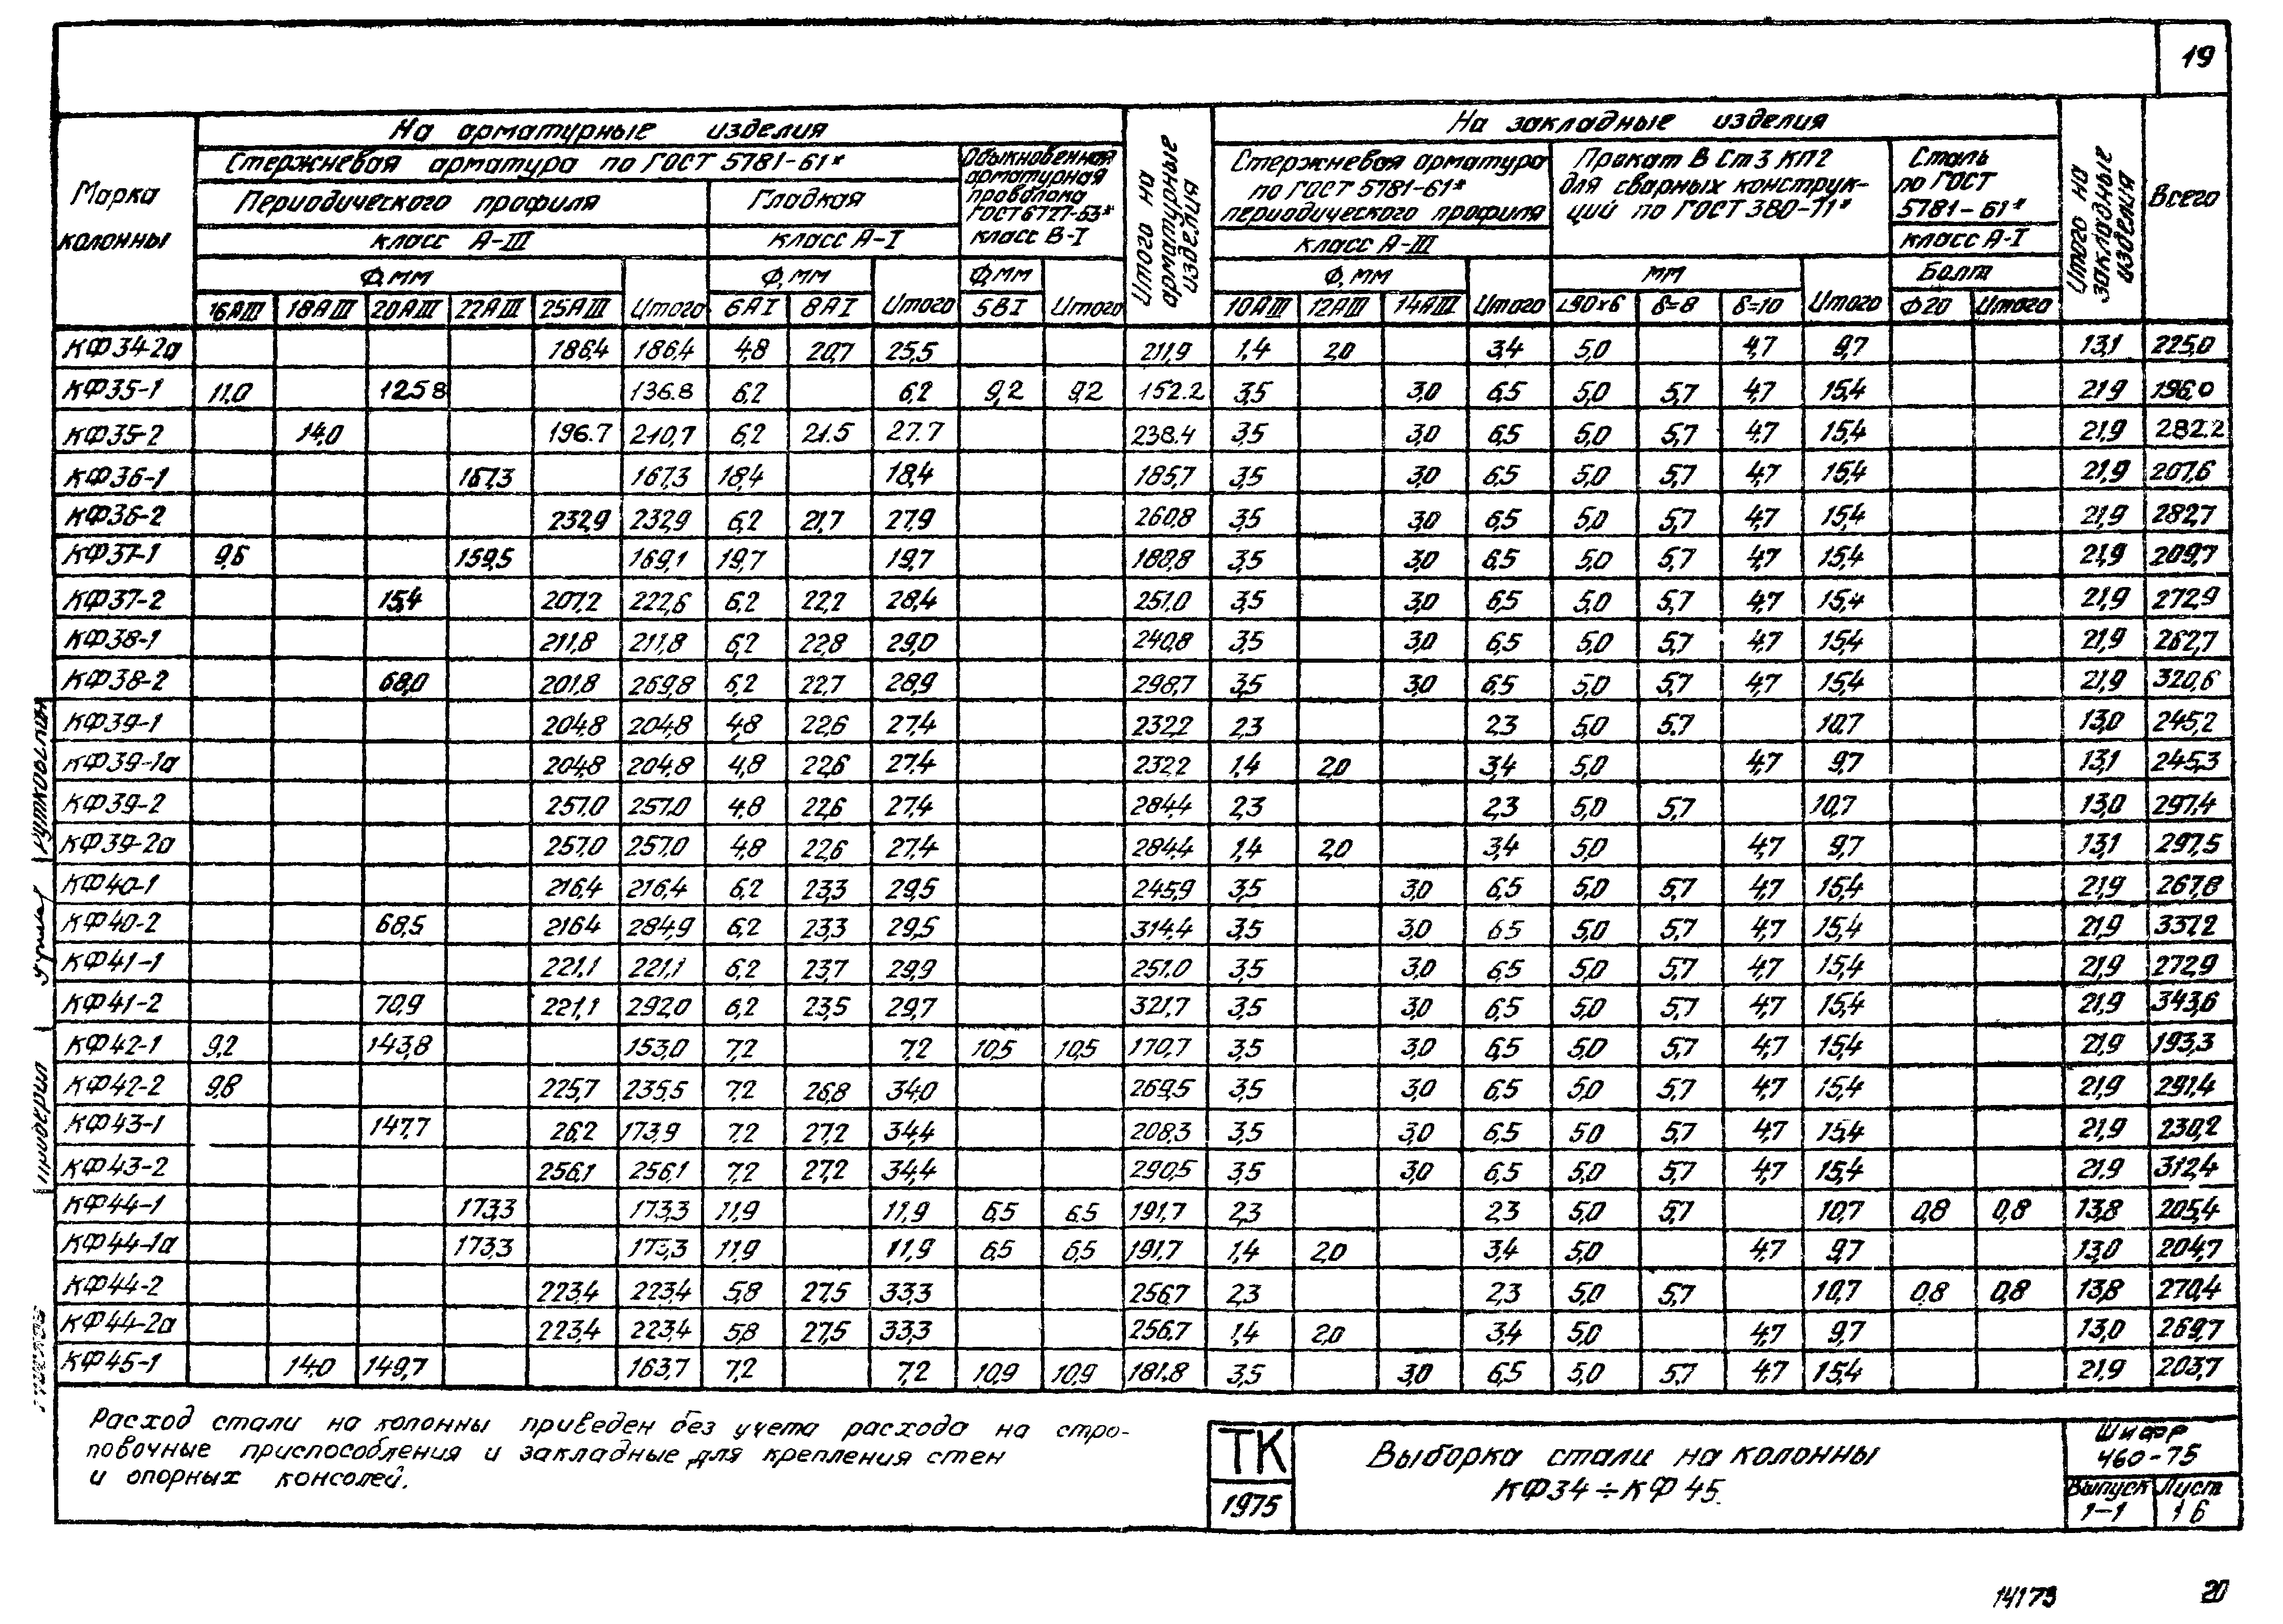 19
Марка колонны
На арматурные изделия
Стержневая арматура по ГОСТ 5781-61*
Периодического профиля
класс А-III
Ф,мм
16АIII 18АIII 20АIII 22АIII 25АIII Итого
Гладкая
класс А-I
Ф,мм
6АI 8АI Итого
Обыкновенная арматурная проволока ГОСТ 6727-53*
класс В-I
Ф,мм
5ВI Итого
Итого на арматурные изделия
На закладные изделия
Стержневая арматура по ГОСТ 5781-61* периодического профиля
класс А-III
Ф,мм
10АIII 12АIII 14АIII Итого
Прокат В Ст3 КП2 для сварных конструкций по ГОСТ 380-71*
мм
∟90×6 δ=8 δ=10 Итого
Сталь по ГОСТ 5781-61*
класс А-I
Болт
Ф20 Итого
Итого на закладные изделия
Всего
КФ34-2а 186,4 186,4 4,8 20,7 25,5 211,9 1,4 2,0 3,4 5,0 4,7 9,7 13,1 225,0
КФ35-1 11,0 125.8 136.8 6,2 6,2 9,2 9,2 152.2 3,5 3,0 6,5 5,0 5,7 4,7 15,4 21,9 196,0
КФ35-2 14,0 196.7 210,7 6,2 21.5 27.7 238.4 3,5 3,0 6,5 5,0 5,7 4,7 15,4 21,9 282.2
КФ36-1 167,3 167,3 18,4 18,4 185,7 3,5 3,0 6,5 5,0 5,7 4,7 15,4 21,9 207,6
КФ36-2 232,9 232,9 6,2 21,7 27,9 260,8 3,5 3,0 6,5 5,0 5,7 4,7 15,4 21,9 282,7
КФ37-1 9,6 159,5 169,1 19,7 19,7 188,8 3,5 3,0 6,5 5,0 5,7 4,7 15,4 21,9 209,7
КФ37-2 15,4 207,2 222,6 6,2 22,2 28,4 251,0 3,5 3,0 6,5 5,0 5,7 4,7 15,4 21,9 272,9
КФ38-1 211,8 211,8 6,2 22,8 29,0 240,8 3,5 3,0 6,5 5,0 5,7 4,7 15,4 21,9 262,7
КФ38-2 68,0 201,8 269,8 6,2 22,7 28,9 298,7 3,5 3,0 6,5 5,0 5,7 4,7 15,4 21,9 320,6
КФ39-1 204,8 204,8 4,8 22,6 27,4 232,2 2,3 2,3 5,0 5,7 10,7 13,0 245,2
КФ39-1а 204,8 204,8 4,8 22,6 27,4 232,2 1,4 2,0 3,4 5,0 4,7 9,7 13,1 245,3
КФ39-2 257,0 257,0 4,8 22,6 27,4 284,4 2,3 2,3 5,0 5,7 10,7 13,0 297,4
КФ39-2а 257,0 257,0 4,8 22,6 27,4 284,4 1,4 2,0 3,4 5,0 4,7 9,7 13,1 297,5
КФ40-1 216,4 216,4 6,2 23,3 29,5 245,9 3,5 3,0 6,5 5,0 5,7 4,7 15,4 21,9 267,8
КФ40-2 68,5 216,4 284,9 6,2 23,3 29,5 314,4 3,5 3,0 6,5 5,0 5,7 4,7 15,4 21,9 337,2
КФ41-1 221,1 221,1 6,2 23,7 29,9 251,0 3,5 3,0 6,5 5,0 5,7 4,7 15,4 21,9 272,9
КФ41-2 70,9 221,1 292,0 6,2 23,5 29,7 321,7 3,5 3,0 6,5 5,0 5,7 4,7 15,4 21,9 343,6
КФ42-1 9,2 143,8 153,0 7,2 7,2 10,5 10,5 170,7 3,5 3,0 6,5 5,0 5,7 4,7 15,4 21,9 193,3
КФ42-2 9,8 225,7 235,5 7,2 26,8 34,0 269,5 3,5 3,0 6,5 5,0 5,7 4,7 15,4 21,9 291,4
КФ43-1 147,7 26,2 173,9 7,2 27,2 34,4 208,3 3,5 3,0 6,5 5,0 5,7 4,7 15,4 21,9 230,2
КФ43-2 256,1 256,1 7,2 27,2 34,4 290,5 3,5 3,0 6,5 5,0 5,7 4,7 15,4 21,9 312,4
КФ44-1 173,3 173,3 11,9 11,9 6,5 6,5 191,7 2,3 2,3 5,0 5,7 10,7 0,8 0,8 13,8 205,4
КФ44-1а 173,3 173,3 11,9 11,9 6,5 6,5 191,7 1,4 2,0 3,4 5,0 4,7 9,7 13,0 204,7
КФ44-2 223,4 223,4 5,8 27,5 33,3 256,7 2,3 2,3 5,0 5,7 10,7 0,8 0,8 13,8 270,4
КФ44-2а 223,4 223,4 5,8 27,5 33,3 256,7 1,4 2,0 3,4 5,0 4,7 9,7 13,0 269,7
КФ45-1 14,0 149,7 163,7 7,2 7,2 10,9 10,9 181.8 3,5 3,0 6,5 5,0 5,7 4,7 15,4 21,9 203,7
Расход стали на колонны приведен без учета расхода на стро-
повочные приспособления и закладные для крепления стен
и опорных консолей.
ТК
1975
Выборка стали на колонны
КФ34÷КФ45.
Шифр
460-75
Выпуск
1-1
Лист
16
проверил
14173
20